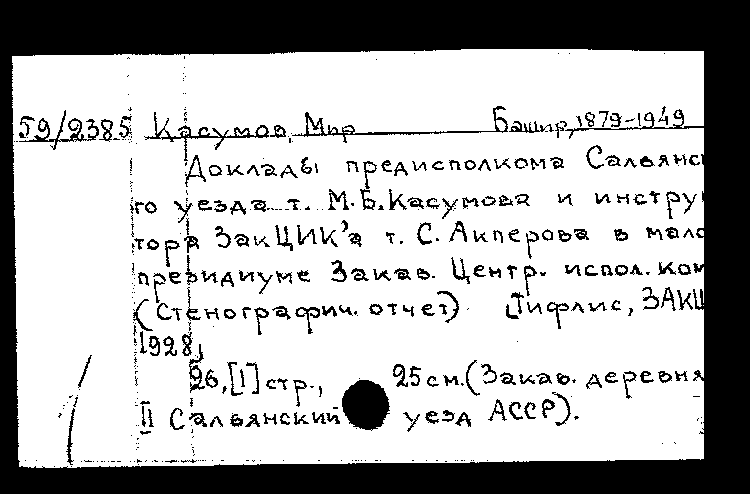 59/2385 Касумов, Мир Башир, 1879-1949
Доклады предисполкома Сальянс
го уезда т. М.Б.Касумова и инстру
тора ЗакЦИК'а т. С. Акперова в мало
президиуме Закав. Центр. испол. ком
(Стенографич. отчет) [Тифлис, ЗАКЦ
1928,
26,[1] стр., 25 см. (Закав. деревня
II Сальянский уезд АССР).